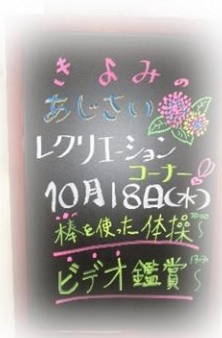 きよみの
あじさい
レクリエーション
コーナー
10月18日(水)
棒を使った体操
ビデオ鑑賞